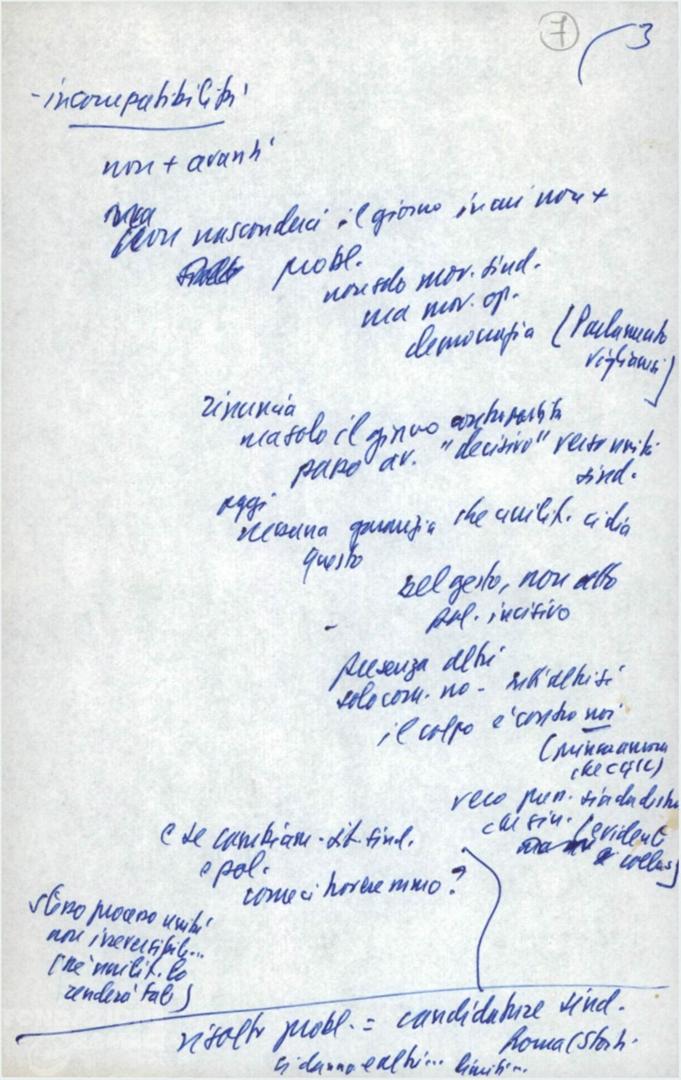 7 3
- incompatibilità
non + avanti
ma
non nasconderci il giorno in cui non +
probl.
non solo mov. sind.
ma mov. op.
democrazia (Parlamento
rinuncia
ma solo il giorno contropartita
passo av. "decisivo" verso unità
sind.
oggi
nessuna garanzia che unilit. ci dia
questo
bel gesto, non atto
pol. incisivo
-
presenza altri
solo com. no - tutti altri sì
il colpo è contro noi
(prima ancora
che CGIL)
vero pien. sindadistra
che sin. (evident
e collus)
e se cambiam. sit. sind.
e pol.
come ci troveremmo?
stesso processo unità
non irreversibile...
(né unilit. lo
renderà tale)
risolto probl. = candidature sind.
Roma (Storti.
si danno e altri... limiti...